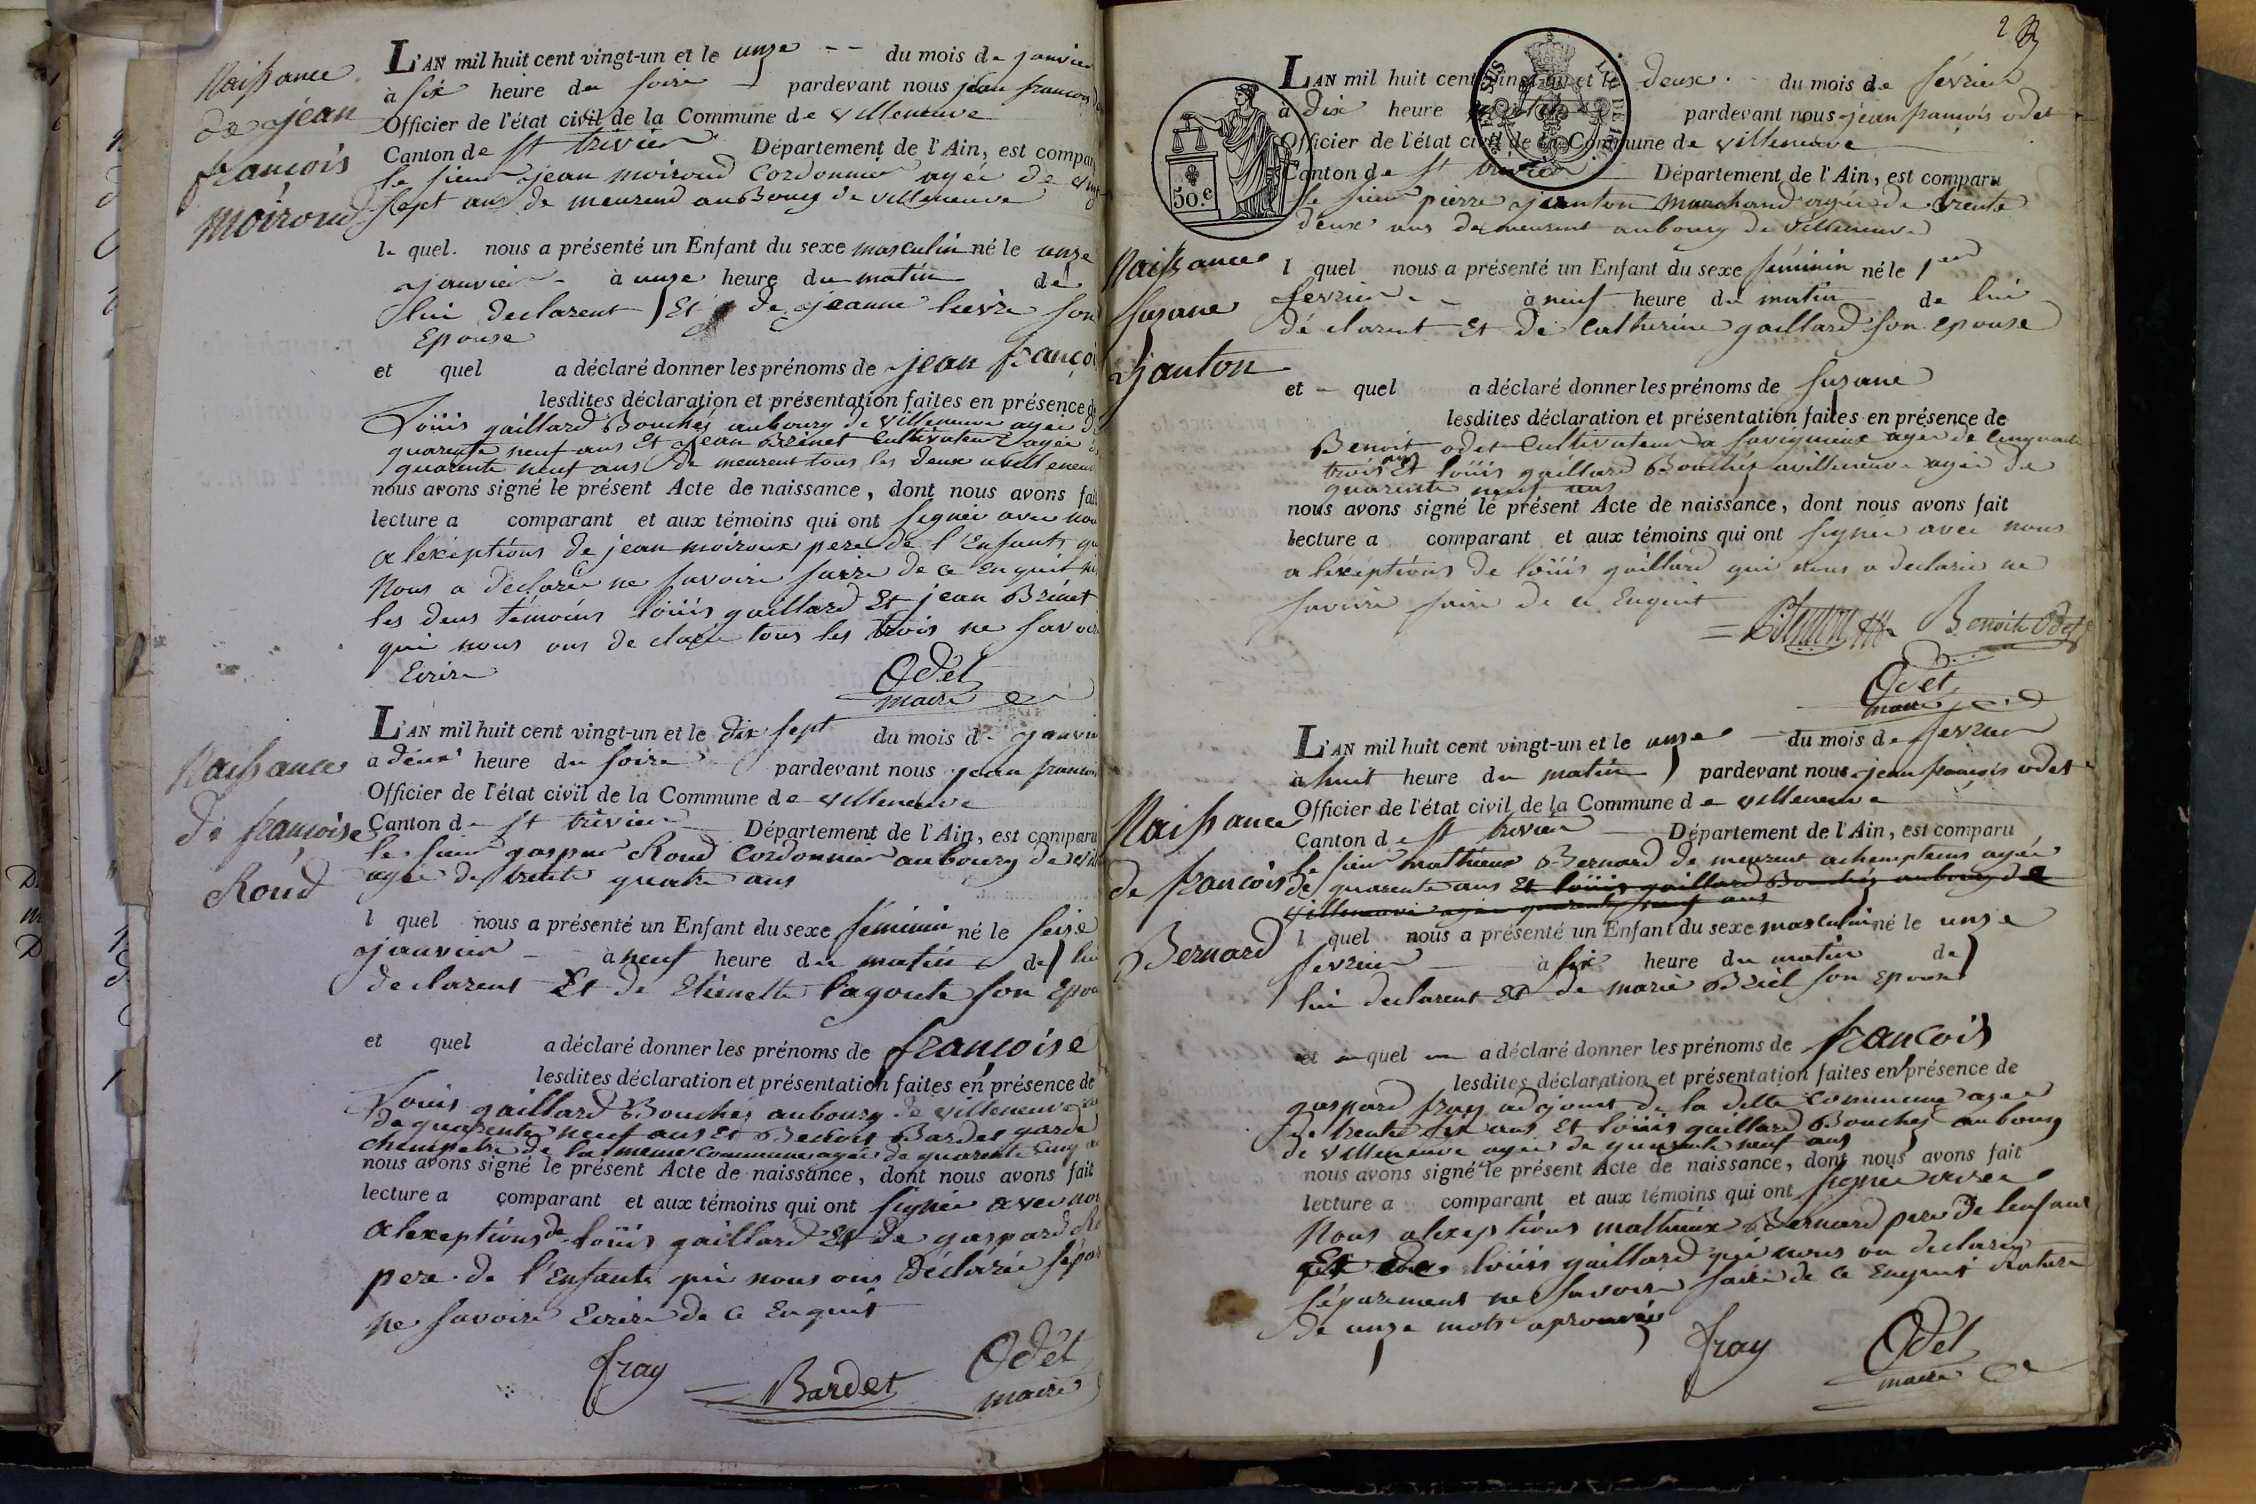 Naissance
de jean
françois
moiroud
L'AN mil huit cent vingt-un et le unze -- du mois de janvier
à six heure du soire pardevant nous jean françois
Officier de l'état civil de la Commune de villeneuve
Canton de st trivier Département de l'Ain, est comparu
le sieur jean moiroud Cordonnier agée de vingt
sept ans de meurend au Bourg de villeneuve
le quel. nous a présenté un Enfant du sexe masculin né le unze
janvier - à unze heure du matin de
lui declarent Et de jeanne lievre son
Epouse
et quel a déclaré donner les prénoms de jean françois
lesdites déclaration et présentation faites en présence de
Loüis gaillard Bouchés aubourg de villeneuve agée de
quarente neuf ans Et jean Brinet Cultivateur agée de
quarente neuf ans de meurent tous les deux a villeneuve
nous avons signé le présent Acte de naissance, dont nous avons fait
lecture a comparant et aux témoins qui ont signée avec nous
a lexeptions de jean moiroux pere de l'Enfants qui
nous a declarée ne savoire faire de ce Enquit
les deus témoins loüis gaillard Et jean Brinet
qui nous ons declarée tous les trois ne savoire
Ecrire
Odet
maire
Naissance
de françoise
Roud
L'AN mil huit cent vingt-un et le dix sept du mois d- janvier
a deux heure du soire pardevant nous jean françois
Officier de l'état civil de la Commune de villeneuve
Canton d- st trivier Département de l'Ain, est comparu
le sieur gaspar Roud Cordonnier aubourg de
agée de trente quatre ans
l quel nous a présenté un Enfant du sexe féminin né le seize
janvier - à neuf heure du matin de lui
declarent Et de Etienette lagoute son Epouse
et quel a déclaré donner les prénoms de françoise
lesdites déclaration et présentation faites en présence de
Louis gaillard Bouchés aubourg de villeneuve
de quarente neuf ans Et Benoit Bardet garde
chempetre de la meme commune agée de quarente cinq
nous avons signé le présent Acte de naissance, dont nous avons fait
lecture a comparant et aux témoins qui ont signée avec nous
a lexeptions de loüis gaillard Et de gaspard
pere de l'Enfants qui nous ons déclarée
ne savoire Ecrire de ce Enquit
fray
Bardet
Odet
maire
2
LOI DE
50.c
L'AN mil huit cent vingt-un et le deux du mois de février
à dix heure pardevant nous jean françois odet
Officier de l'état civil de la Commune de villeneuve
Canton de st trivier Département de l'Ain, est comparu
le sieur pierre janton Marchand agée de trente
deux ans de meurent aubourg de villeneuve
Naissance
susane
Janton
l quel nous a présenté un Enfant du sexe féminin né le 1er
fevrier - à neuf heure du matin de lui
déclarent Et de Catherine gaillard son Epouse
et - quel a déclaré donner les prénoms de susane
lesdites déclaration et présentation faites en présence de
Benoit odet Cultivateur a savigneux agée de cinquante
trois ans Et loüis gaillard Bouchés a villeneuve agée de
quarente neuf ans
nous avons signé le présent Acte de naissance, dont nous avons fait
lecture a comparant et aux témoins qui ont signée avec nous
a lexeptions de loüis gaillard qui nous a declarée ne
savoire faire de ce Enquit
Benoit Odet
Odet
maire
Naissance
de francois
Bernard
L'AN mil huit cent vingt-un et le unze du mois de fevrier
à huit heure du matin pardevant nous jean françois odet
Officier de l'état civil de la Commune de villeneuve
Canton de st trivier Département de l'Ain, est comparu
le sieur mathieux Bernard de meurent achampteins agée
de quarente ans Et loüis gaillard Bouchés aubourg de
villeneuve agée quarente neuf ans
l quel nous a présenté un Enfant du sexe masculin né le unze
fevrier à six heure du matin de
lui declarent Et de marie Briel son Epouse
et quel a déclaré donner les prénoms de francois
lesdites déclaration et présentation faites en présence de
gaspard fray adjoint de la ditte commune agée
de trente six ans Et loüis gaillard Bouchés au bourg
de villeneuve agée de quarente neuf ans
nous avons signé le présent Acte de naissance, dont nous avons fait
lecture a comparant et aux témoins qui ont signée avec
nous alexeptions mathieux Bernard pere de lenfant
Et de loüis gaillard qui nous on declarez
séparement ne savoire faire de ce Enquit Rature
de unze mots aprouvée
fray
Odet
maire